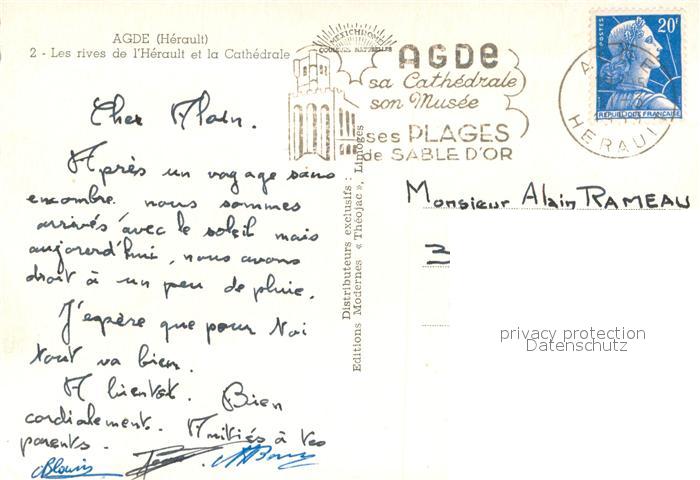 AGDE (Hérault)
2 - Les rives de l'Hérault et la Cathédrale
MEXICHROME
COULEURS NATURELLES
AGDE
sa Cathédrale
son Musée
ses PLAGES
de SABLE D'OR
POSTES
20F
REPUBLIQUE FRANÇAISE
HERAULT
Cher Alain.
Après un voyage sans
encombre nous sommes
arrivés avec le soleil mais
aujourd'hui, nous avons
droit à un peu de pluie.
J'espère que pour toi
tout va bien.
A bientôt. Bien
cordialement. Amitiés à tes
parents.
Distributeurs exclusifs :
Editions Modernes « Théojac », Limoges
Monsieur Alain RAMEAU
3
privacy protection
Datenschutz